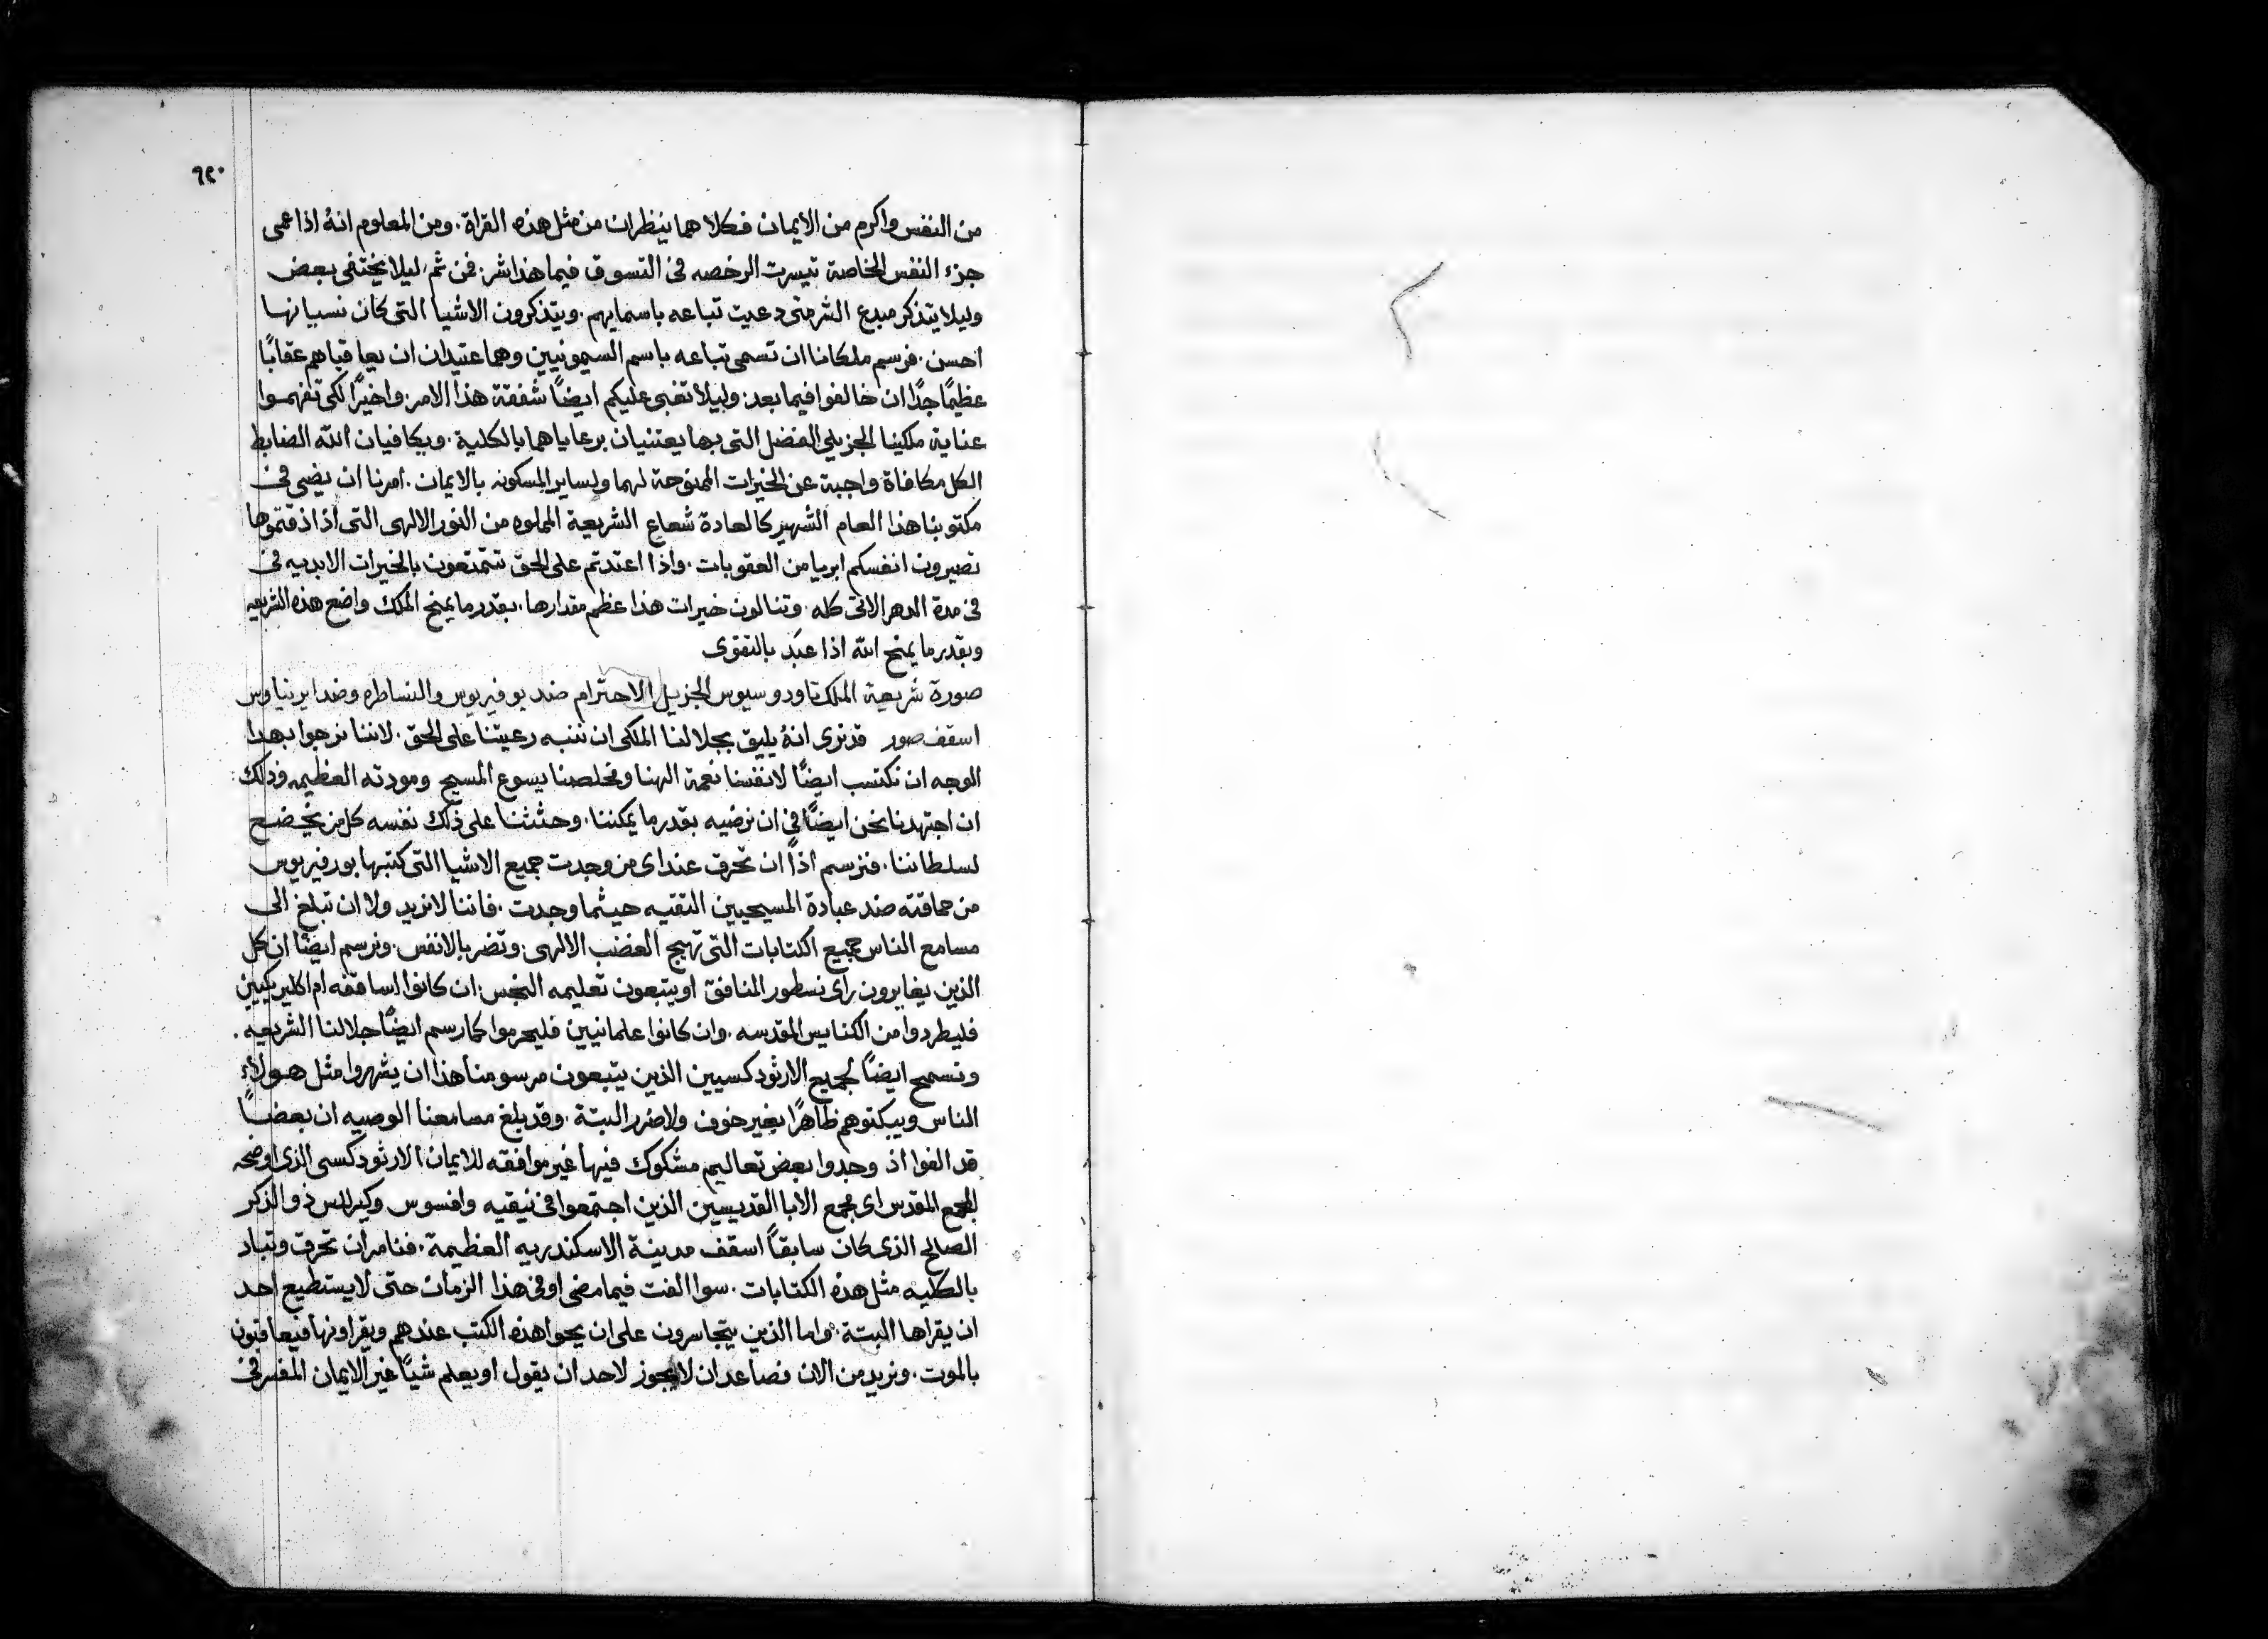 ٦٩٠
من النفس واكرم من الايمان فكلاهما ينظران من مثل هذه القراة. ومن المعلوم انهُ اذا عمى
جزء النفس الخاصة تيسرت الرخصه في التسوق فيما هذا شر. فمن ثم ليلا يختفى بعض
وليلا يتذكر مبدع الشر متى دعيت تباعه باسمايهم. ويتذكرون الاشيا التى كان نسيانها
احسن. فرسم ملكانا ان تسمى تباعه باسم السيمونيين وهما عتيدان ان يعاقباهم عقابًا
عظيمًا جدًا ان خالفوا فيما بعد. وليلا تغبى عليكم ايضًا شفقة هذا الامر. واخيرًا لكى تفهموا
عناية ملكينا الجزيلي الفضل التى بها يعتنيان برعاياهما بالكلية. ويكافيان الله الضابط
الكل مكافاة واجبة عن الخيرات الممنوحة لهما ولساير المسكونه بالايمان. امرنا ان يضى في
مكتوبنا هذا العام الشهير كالعادة شعاع الشريعة المملوه من النور الالهى التى اذا ذقتموها
تصيرون انفسكم ابريا من العقوبات. واذا اعتدتم على الحق تتمتعون بالخيرات الابديه في
في مدة الدهر الاتى كله. وتنالون خيرات هذا عظم مقدارها. بقدر ما يمنح الملك واضع هذه الشريعه
وبقدر ما يمنح الله اذا عبَد بالتقوى
صورة شريعة الملك تاودوسيوس الجزيل الاحترام ضد بوفيريوس والنساطره وضد ايريناوس
اسقف صور قد نرى انهُ يليق بجلالنا الملكى ان ننبه رعيتنا على الحق. لاننا نرجوا بهذا
الوجه ان نكتسب ايضًا لانفسنا نعمة الهنا ومخلصنا يسوع المسيح ومودته العظيمه وذلك
ان اجتهدنا نحن ايضًا في ان نرضيه بقدر ما يمكننا. وحثثنا على ذلك نفسه كل من يخضع
لسلطاننا. فنرسم اذًا ان تحرق عند اى من وجدت جميع الاشيا التى كتبها بورفيريوس
من حماقته ضد عبادة المسيحيين التقيه حيثما وجدت. فاننا لا نريد ولا ان تبلغ الى
مسامع الناس جميع الكتابات التى تهيج الغضب الالهى. وتضر بالانفس. ونرسم ايضًا ان كل
الذين يغايرون راى نسطور المنافق او يتبعون تعليمه النجس. ان كانوا اساقفه ام اكليريكيين
فليطردوا من الكنايس المقدسه. وان كانوا علمانيين فليحرموا كما رسم ايضًا جلالنا الشريعه.
ونسمح ايضًا لجميع الارثودكسيين الذين يتبعون مرسومنا هذا ان يشهروا مثل هولاء
الناس ويبكتوهم ظاهرًا بغير خوف ولا ضرر البتة. وقد بلغ مسامعنا الوصيه ان بعضًا
قد الفوا اذ وجدوا بعض تعاليم مشكوك فيها غير موافقه للايمان الارثودكسى الذى اوضحه
المجمع المقدس اى مجمع الابا القديسين الذين اجتمعوا في نيقيه وافسوس وكيرللس ذو الذكر
الصالح الذى كان سابقًا اسقف مدينة الاسكندريه العظيمة. فنامر ان تحرق وتباد
بالكليه مثل هذه الكتابات. سوا الفت فيما مضى او في هذا الزمان حتى لا يستطيع احد
ان يقراها البتة. واما الذين يتجاسرون على ان يحوا هذه الكتب عندهم ويقراونها فيعاقبون
بالموت. ونريد من الان فصاعد ان لا يجوز لاحد ان يقول او يعلم شيًا غير الايمان المفسر في